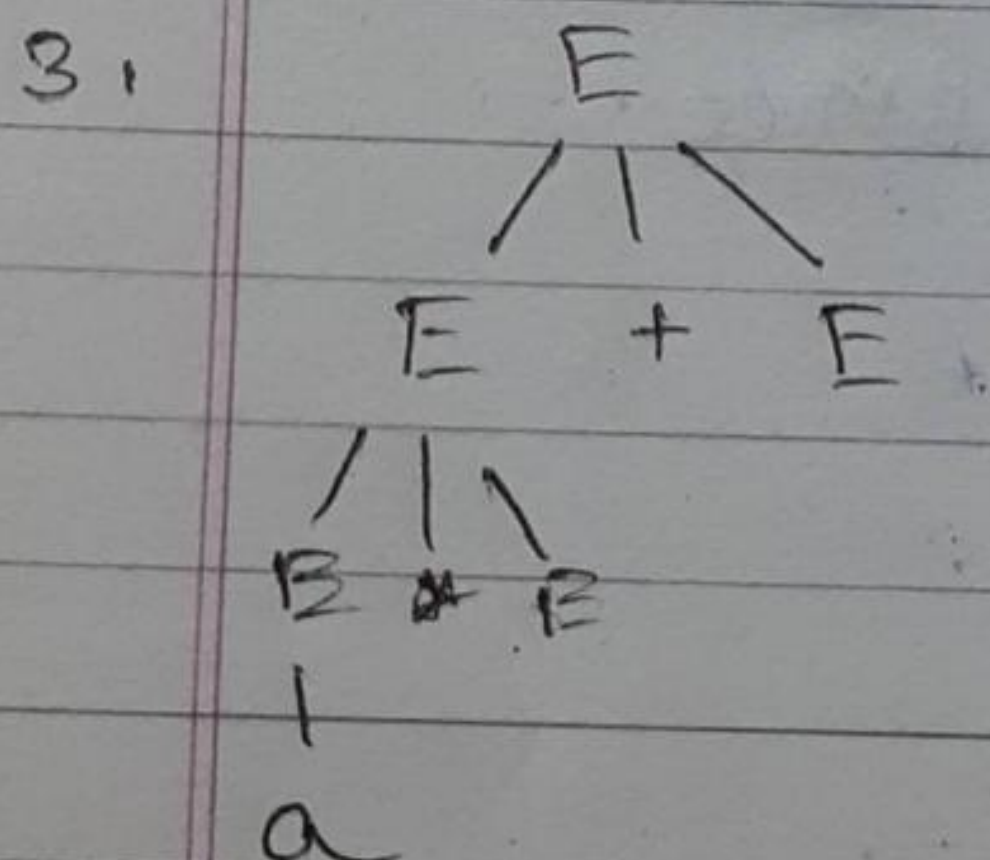 3. E
E + E
E * E
a